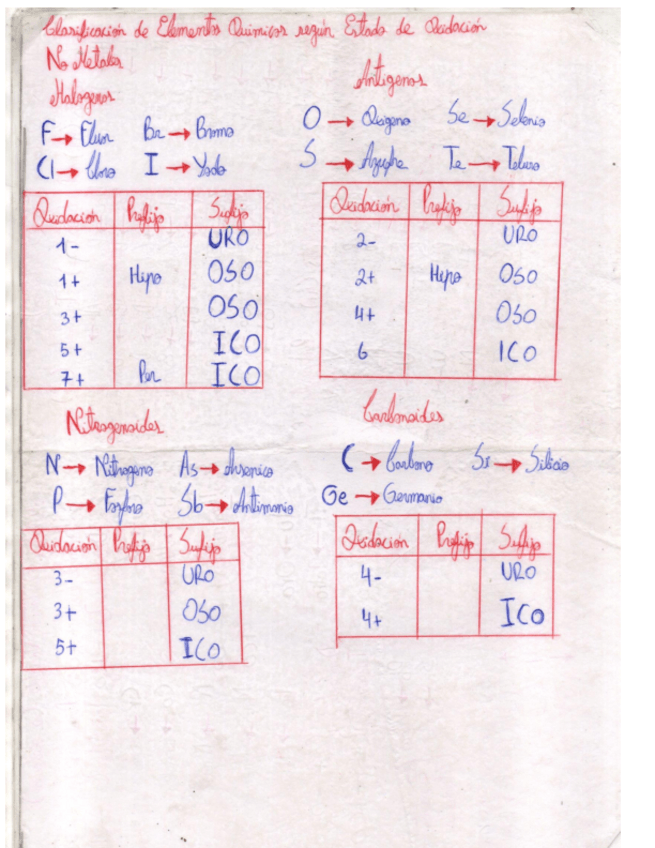 Clasificación de Elementos Químicos según Estado de Oxidación
No Metales
Halogenos
F → Fluor Br → Bromo
Cl → Cloro I → Yodo
Oxidación Prefijo Sufijo
1- URO
1+ Hipo OSO
3+ OSO
5+ ICO
7+ Per ICO
Antigenos
O → Oxigeno Se → Selenio
S → Azufre Te → Teluro
Oxidación Prefijo Sufijo
2- URO
2+ Hipo OSO
4+ OSO
6 ICO
Nitrogenoides
N → Nitrogeno As → Arsenico
P → Fosforo Sb → Antimonio
Oxidación Prefijo Sufijo
3- URO
3+ OSO
5+ ICO
Carbonoides
C → Carbono Si → Silicio
Ge → Germanio
Oxidación Prefijo Sufijo
4- URO
4+ ICO